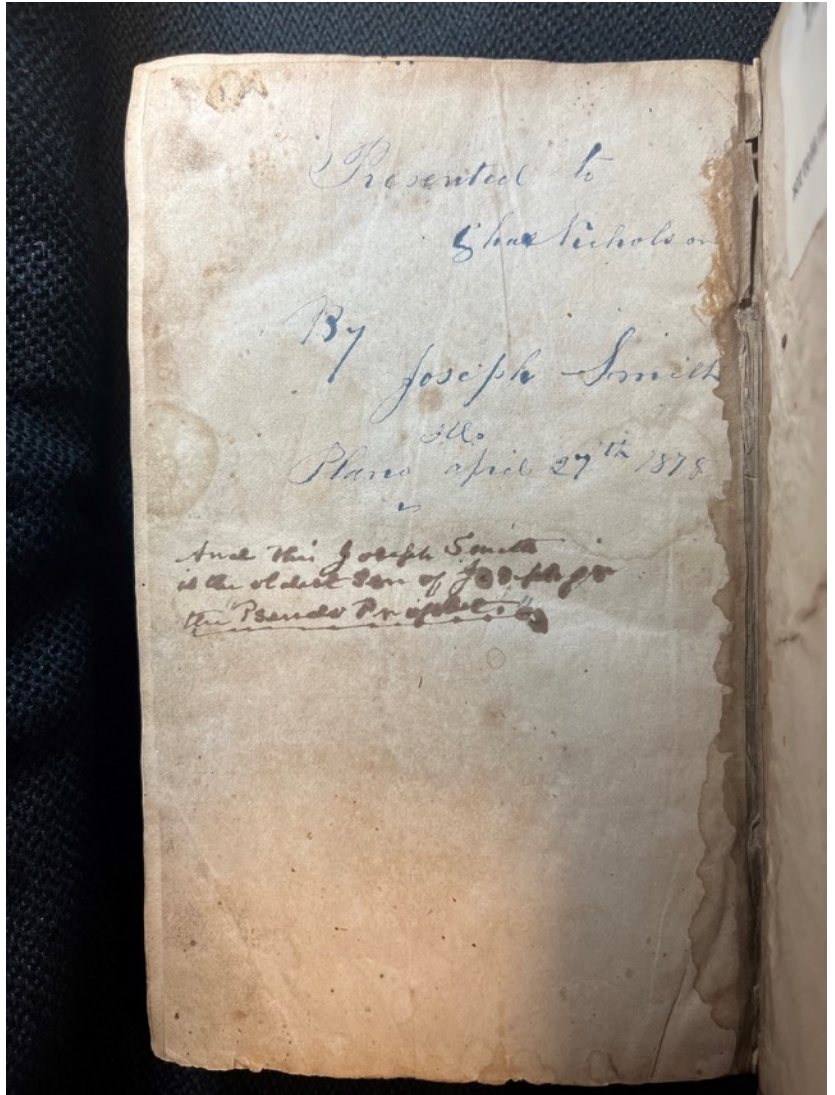 Presented to
Chas Nicholson
By
Joseph Smith
Ills
Plano april 27th 1878
And this Joseph Smith
is the oldest son of Joseph
the "Pseudo Prophet."